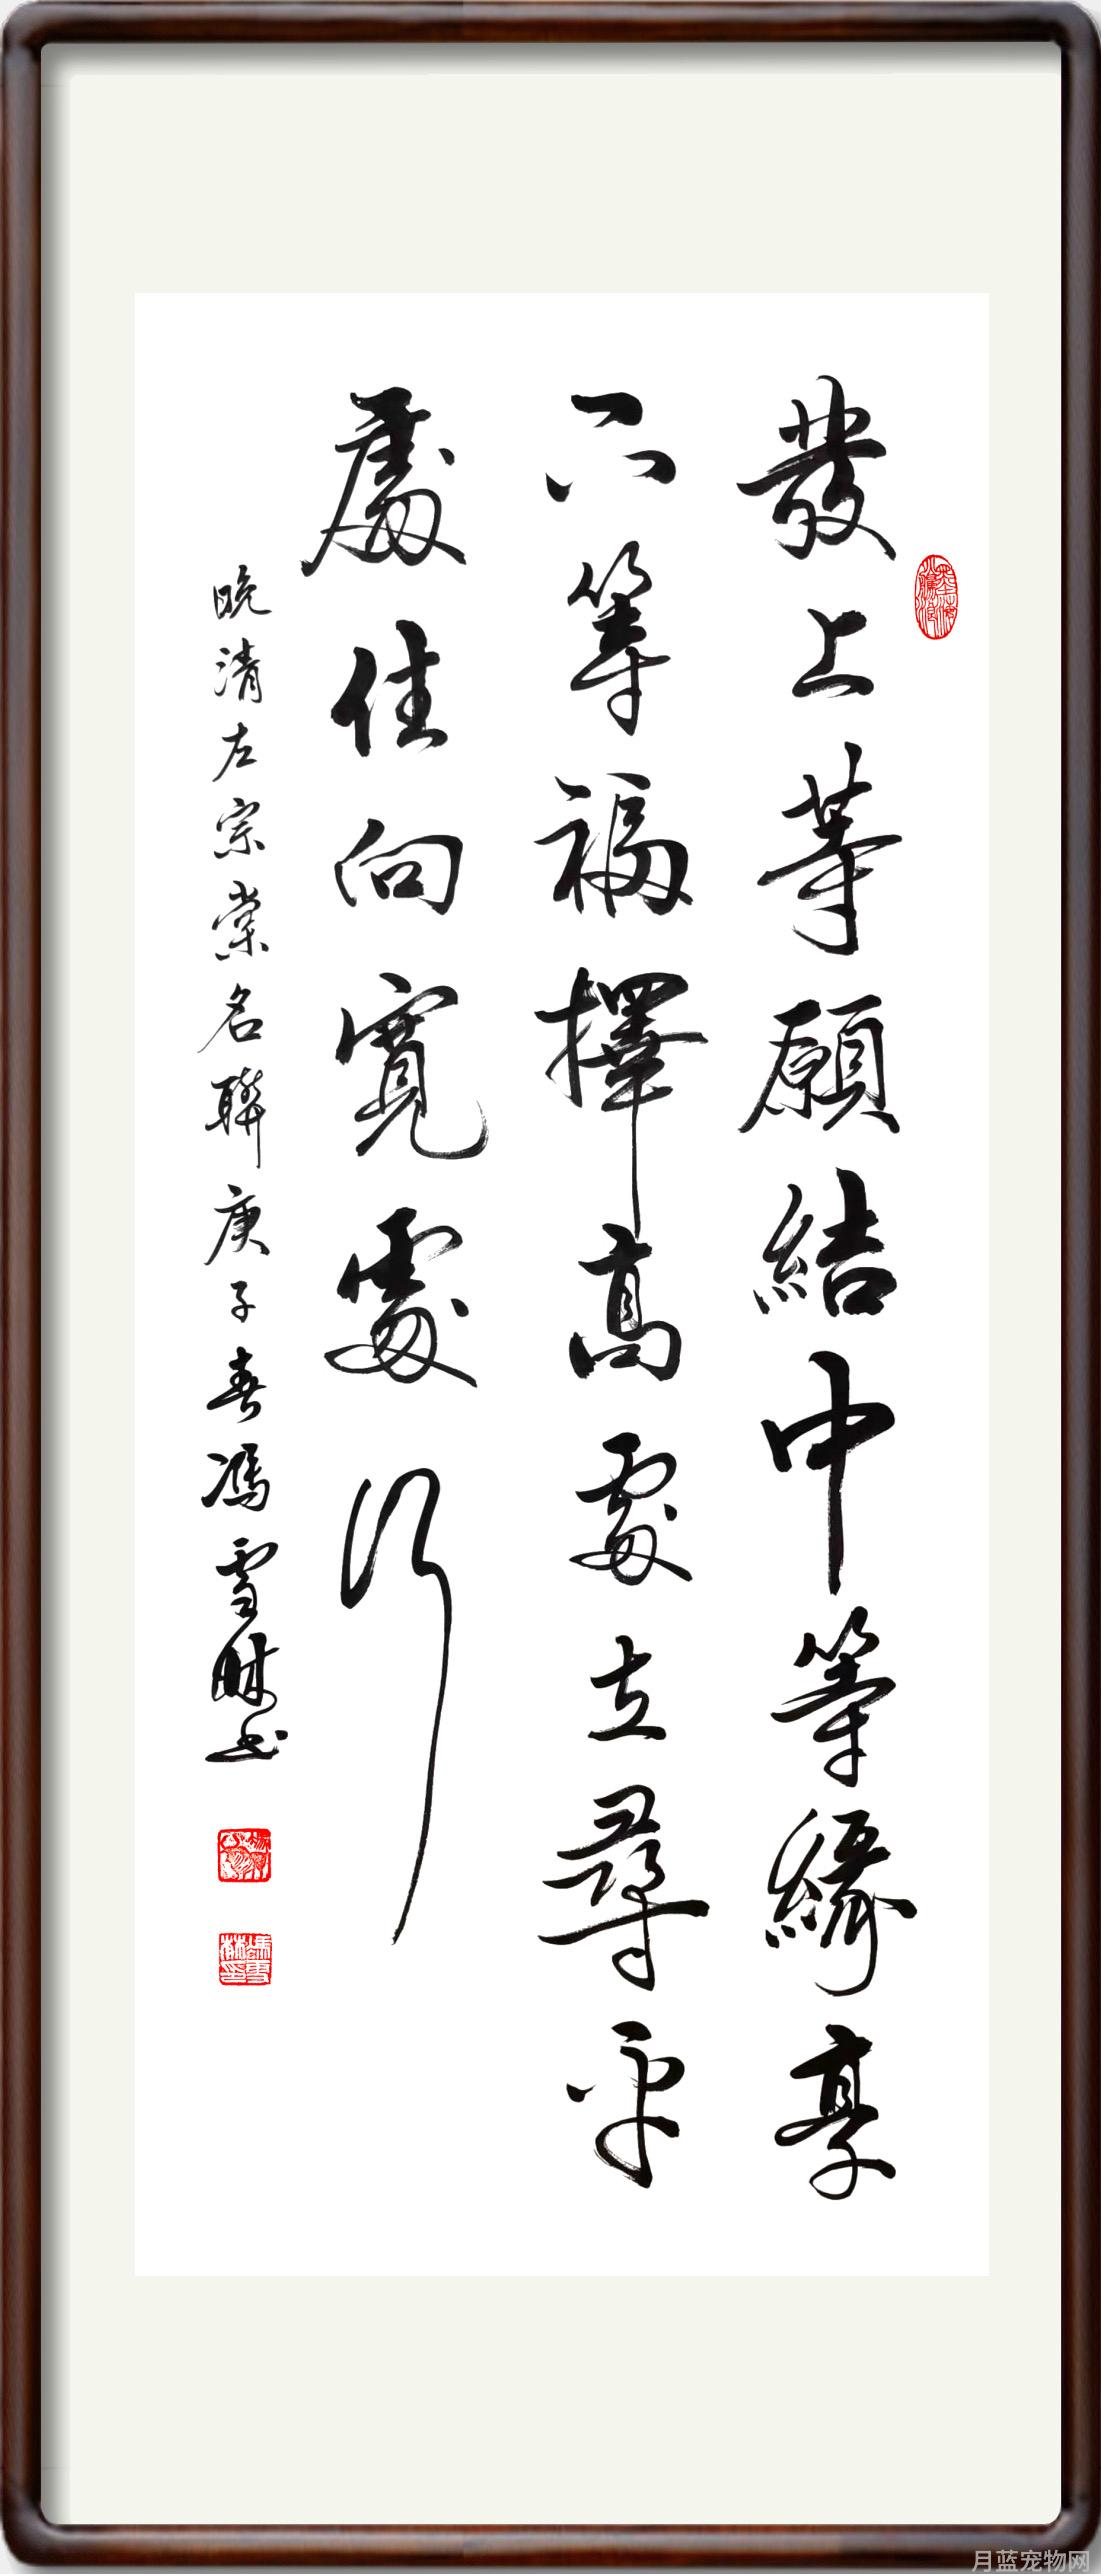 發上等願結中等緣享
下等福擇高處立尋平
處住向寬處行
晚清左宗棠名聯庚子春馮雪林书
月蓝宠物网